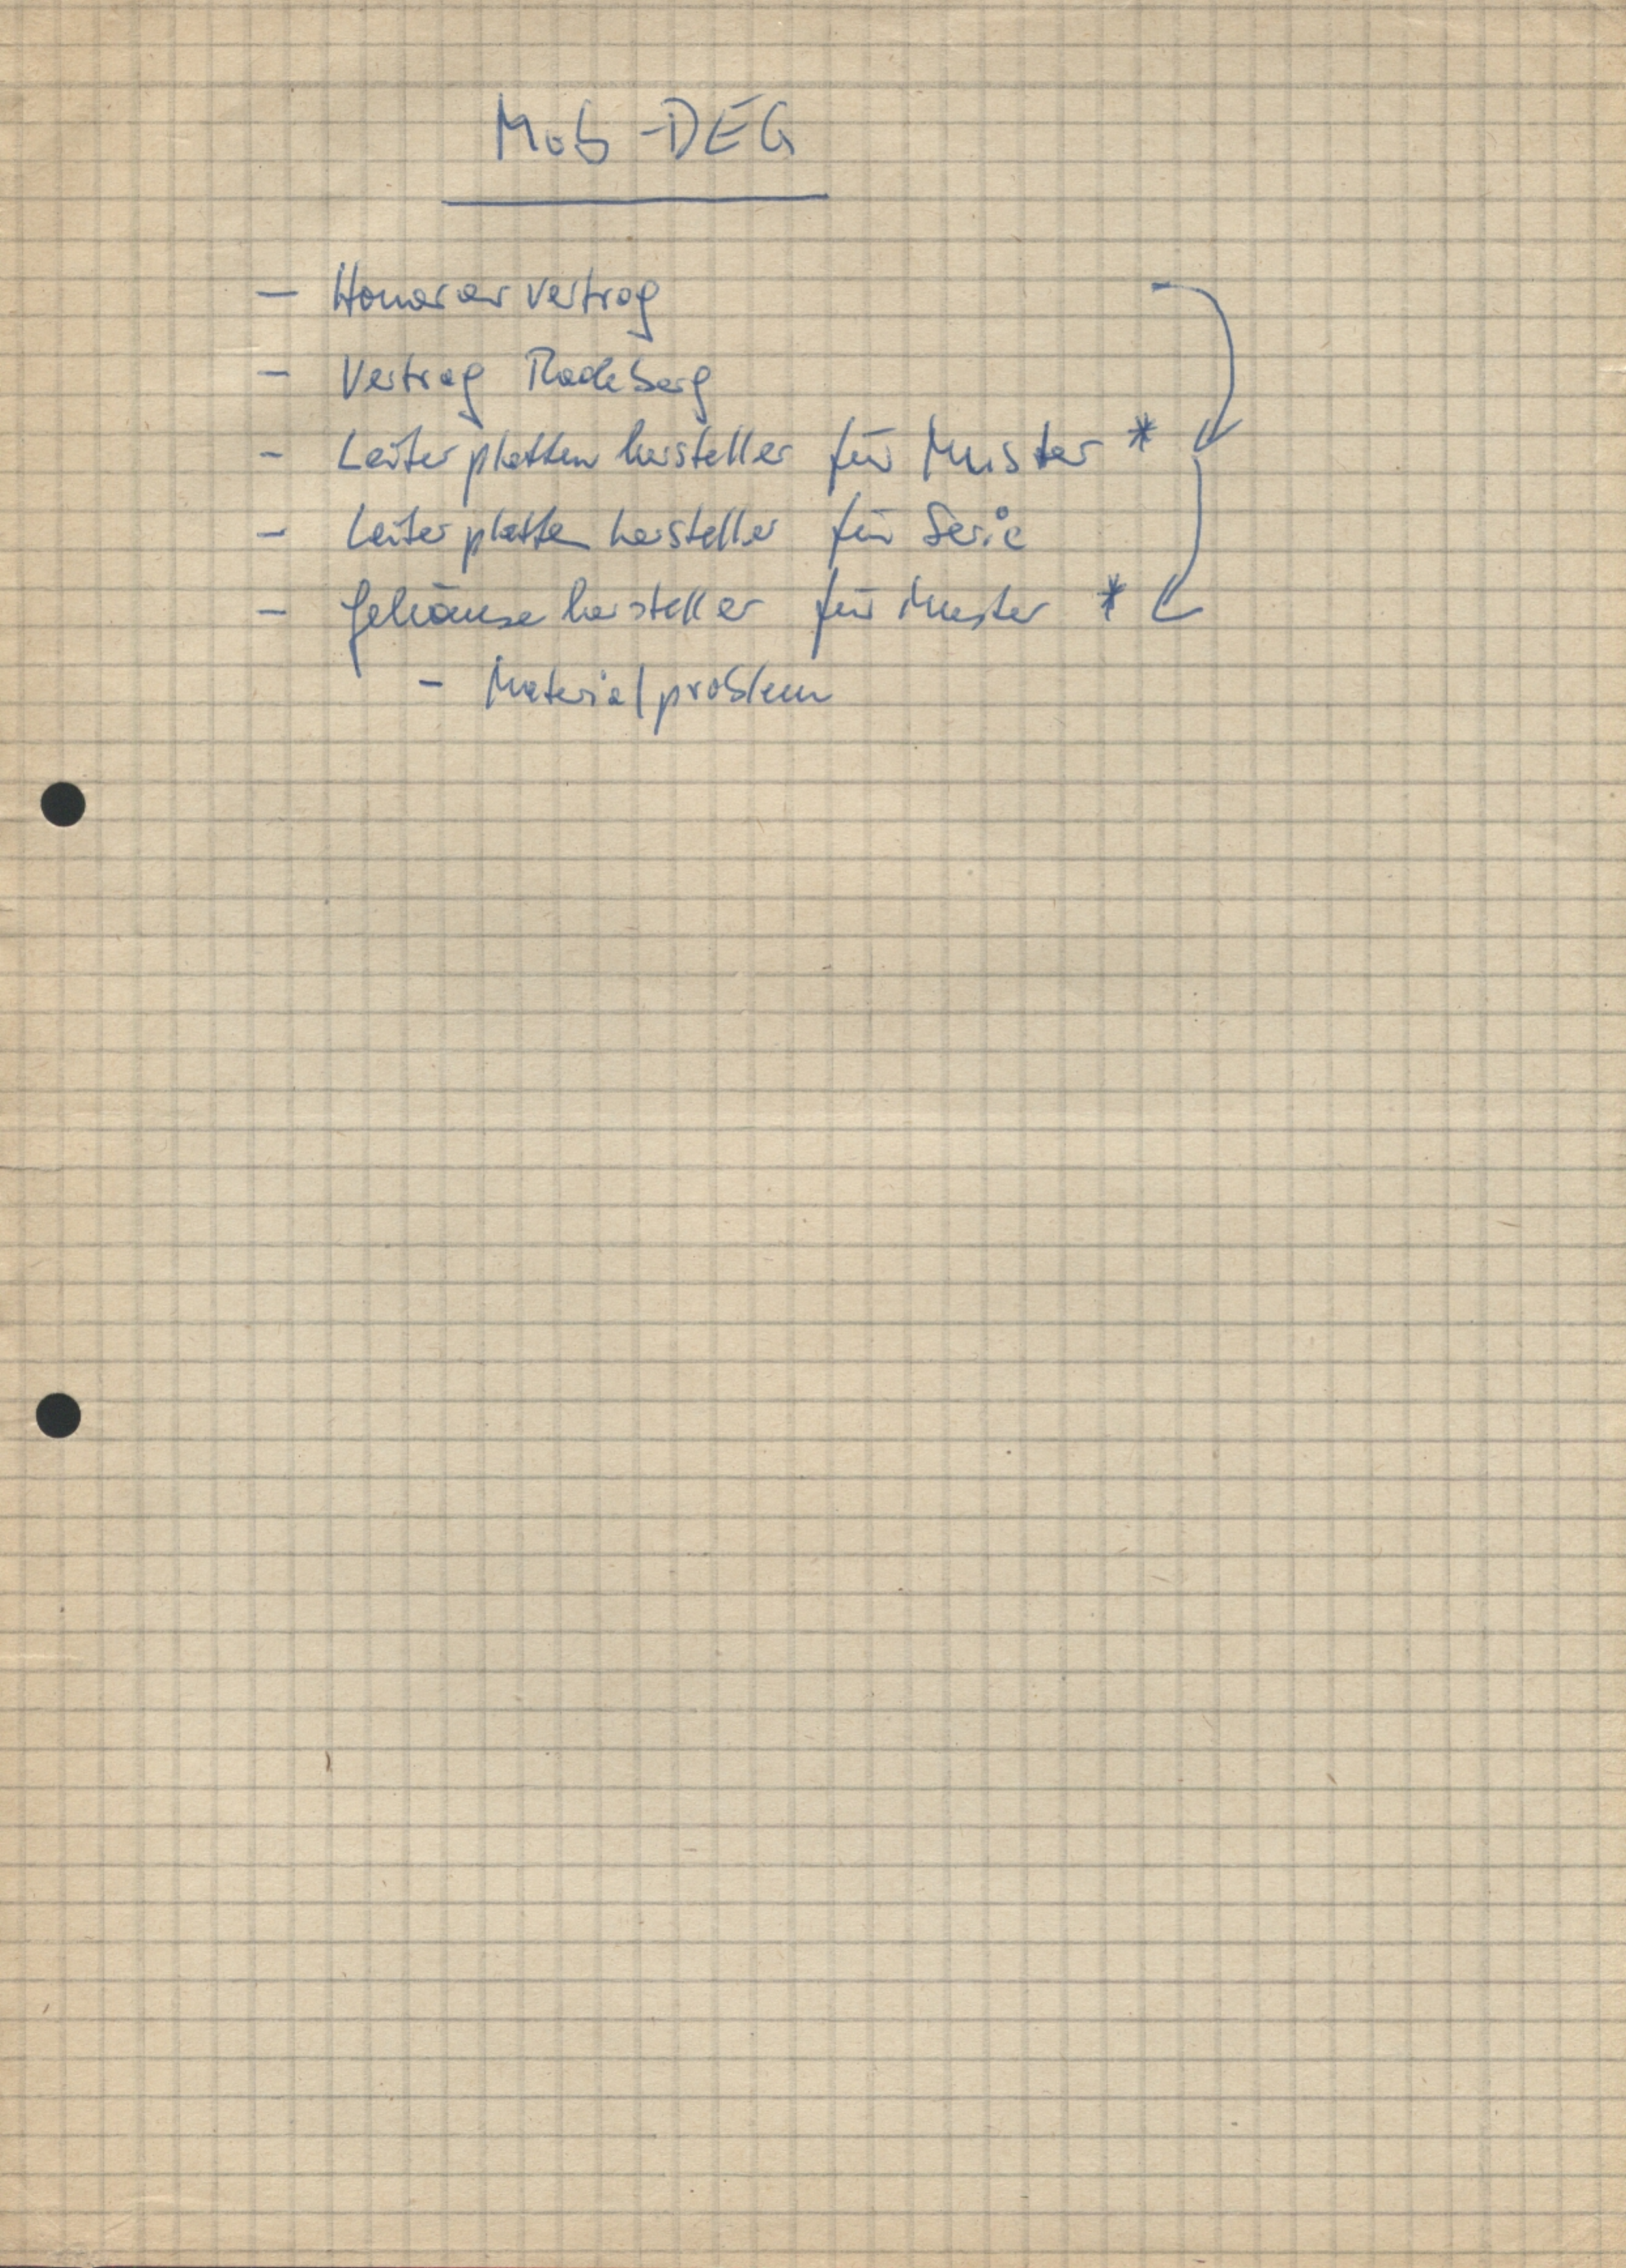 Mob-DEG
- Honorarvertrag
- Vertrag Radeberg
- Leiterplattenhersteller für Muster *
- Leiterplattenhersteller für Serie
- Gehäusehersteller für Muster *
- Materialproblem